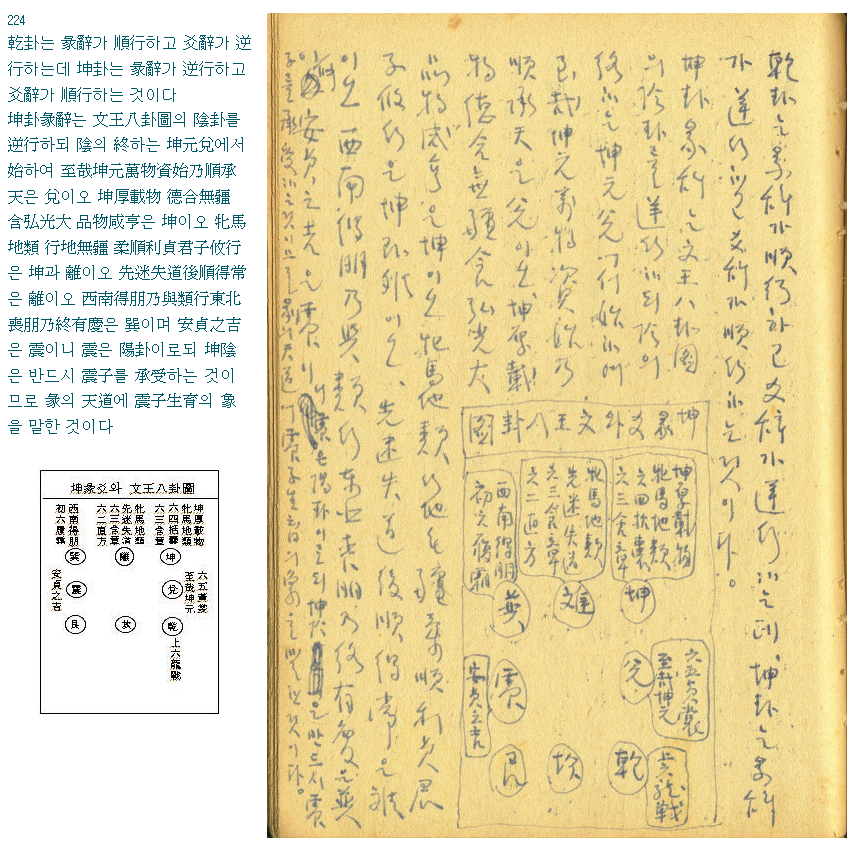 224
乾卦는 彖辭가 順行하고 爻辭가 逆
行하는데 坤卦는 彖辭가 逆行하고
爻辭가 順行하는 것이다
坤卦彖辭는 文王八卦圖의 陰卦를
逆行하되 陰의 終하는 坤元兌에서
始하여 至哉坤元萬物資始乃順承
天은 兌이오 坤厚載物 德合無疆
含弘光大 品物咸亨은 坤이오 牝馬
地類 行地無疆 柔順利貞君子攸行
은 坤과 離이오 先迷失道後順得常
은 離이오 西南得朋乃與類行東北
喪朋乃終有慶은 巽이며 安貞之吉
은 震이니 震은 陽卦이로되 坤陰
은 반드시 震子를 承受하는 것이
므로 彖의 天道에 震子生育의 象
을 말한 것이다
坤彖爻와 文王八卦圖
坤厚載物
牝馬地類
六四括囊
六三含章
牝馬地類
六三含章
先迷失道
六二直方
西南得朋
初六履霜
坤
離
巽
六五黃裳
至哉坤元
兌
震
安貞之吉
乾
坎
艮
上六龍戰
乾卦는彖辭가順行하고爻辭가逆行하는데、坤卦는彖辭
가逆行하고爻辭가順行하는것이다。
坤卦彖辭는文王八卦圖
의陰卦를逆行하되陰의
終하는坤元兌에서始하여
至哉坤元萬物資始乃
順承天은兌이오坤厚載
物德合無疆含弘光大
品物咸亨은坤이오牝馬地類行地無疆柔順利貞君
子攸行은坤과離이오、先迷失道後順得常은離
이오西南得朋乃與類行東北喪朋乃終有慶은巽
이며安貞之吉은震이니震은陽卦이로되坤陰은반드시震
子를承受하는것이므로彖의天道에震子生育의象을말한것이다。
坤彖爻와文王八卦圖
坤厚載物
牝馬地類
六四括囊
六三含章
牝馬地類
先迷失道
六三含章
六二直方
西南得朋
初六履霜
坤
離
巽
六五黃裳
至哉坤元
兌
震
安貞之吉
乾
坎
艮
上六龍戰